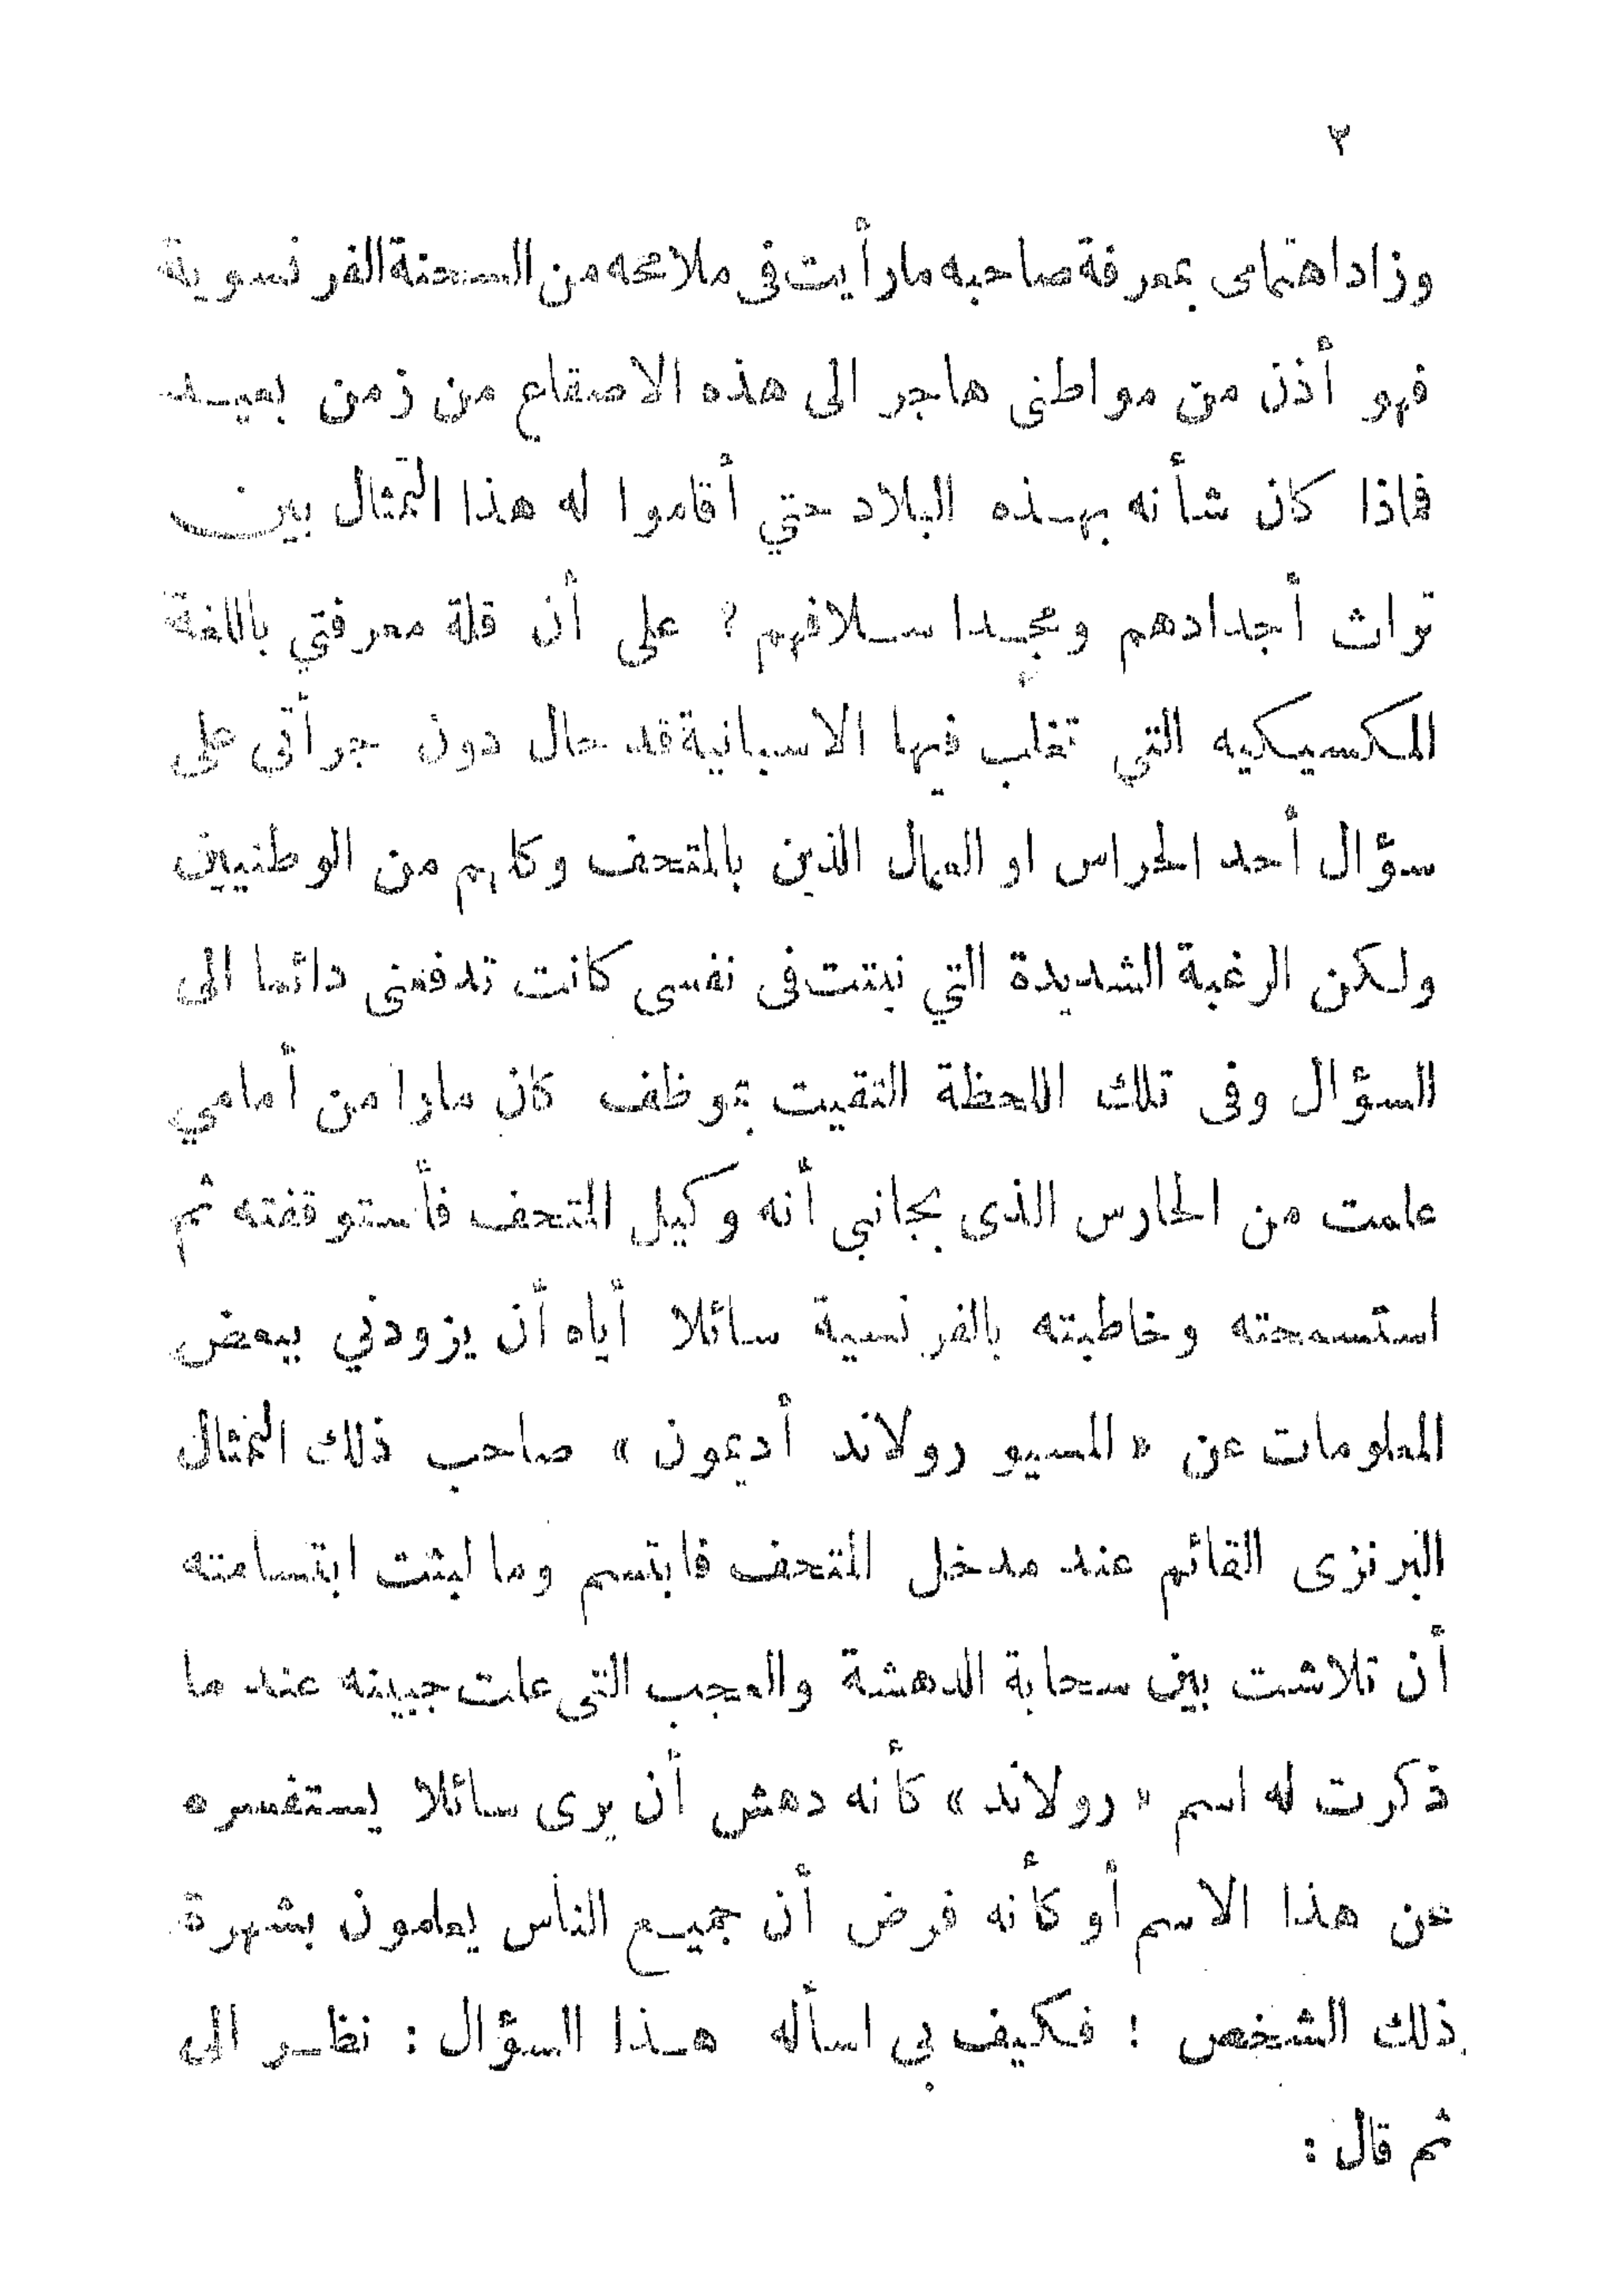 ٣
وزاد اهتمامى بمعرفة صاحبه ما رأيت فى ملامحه من السحنة الفرنسوية
فهو أذن من مواطنى هاجر الى هذه الاصقاع من زمن بعيد
فماذا كان شأنه بهذه البلاد حتي أقاموا له هذا التمثال بين
تراث أجدادهم ومجد اسلافهم ؟ على أن قلة معرفتي باللغة
المكسيكيه التي تغلب فيها الاسبانية قد حال دون جرأتى على
سؤال أحد الحراس او العمال الذين بالمتحف وكلهم من الوطنيين
ولكن الرغبة الشديدة التي نبتت فى نفسى كانت تدفعنى دائما الى
السؤال وفى تلك اللحظة التقيت بموظف كان مارا من أمامي
علمت من الحارس الذى بجانبي أنه وكيل المتحف فأستوقفته ثم
استسمحته وخاطبته بالفرنسية سائلا أياه أن يزودني ببعض
المعلومات عن « المسيو رولاند أديمون » صاحب ذلك التمثال
البرنزى القائم عند مدخل المتحف فابتسم وما لبثت ابتسامته
أن تلاشت بين سحابة الدهشة والعجب التى علت جبينه عند ما
ذكرت له اسم « رولاند » كأنه دهش أن يرى سائلا يستفسره
عن هذا الاسم أو كأنه فرض أن جميع الناس يعلمون بشهرة
ذلك الشخص : فكيف بي اسأله هذا السؤال : نظر الى
ثم قال :